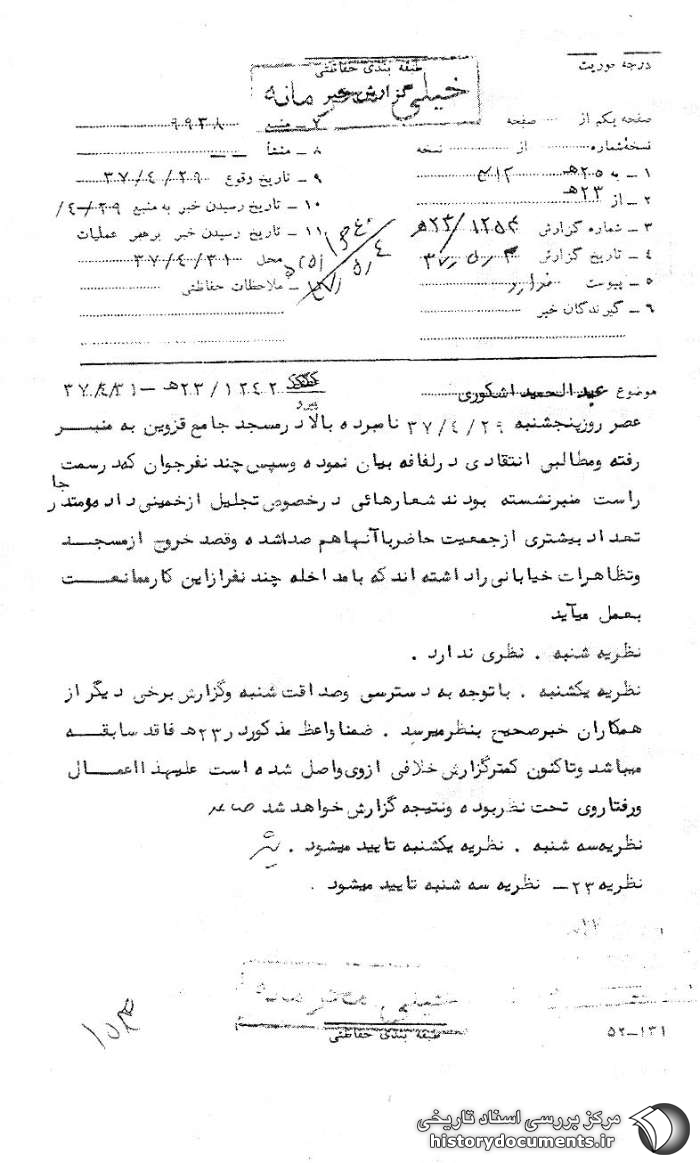 درجه فوریت
طبقه بندی حفاظتی
گزارش خبر
خیلی محرمانه
صفحه یکم از صفحه
نسخه شماره از نسخه
۱ ــ به ۲۵هـ ۳۱۲
۲ ــ از ۲۳هـ
۳ ــ شماره گزارش ۱۲۵۳/۲۳هـ
۴ ــ تاریخ گزارش ۳۷/۵/۳
۵ ــ پیوست ندارد
۶ ــ گیرندگان خبر
۷ ــ منبع ۹۹۳۸
۸ ــ منشأ ــ ــ
۹ ــ تاریخ وقوع ۳۷/۴/۲۹
۱۰ ــ تاریخ رسیدن خبر به منبع ۲۹-۴/
۱۱ ــ تاریخ رسیدن خبر برهبر عملیات
محل ۳۷/۴/۳۱
ملاحظات حفاظتی
موضوع عبدالحمید اشکوری
پیرو ۲۳/۱۲۴۲هـ -۳۷/۴/۳۱
عصر روزپنجشنبه ۳۷/۴/۲۹ نامبرده بالادرمسجد جامع قزوین به منبر
رفته ومطالبی انتقادی درلفافه بیان نموده وسپس چند نفرجوان که درسمت
راست منبرنشسته بودند شعارهائی درخصوص تجلیل ازخمینی داد ومتدرجا
تعداد بیشتری ازجمعیت حاضرباآنهاهم صداشده وقصد خروج ازمسجد
وتظاهرات خیابانی راداشته اندکه بامداخله چند نفرازاین کارممانعت
بعمل میآید
نظریه شنبه . نظری ندارد .
نظریه یکشنبه . باتوجه به دسترسی وصداقت شنبه وگزارش برخی دیگراز
همکاران خبرصحیح بنظرمیرسد . ضمناواعظ مذکوردر۲۳هـ فاقد سابقه
میباشد وتاکنون کمترگزارش خلافی ازوی واصل شده است علیهذااعمال
ورفتاروی تحت نظربوده ونتیجه گزارش خواهد شد
نظریه سه شنبه . نظریه یکشنبه تایید میشود .
نظریه ۲۳ــ نظریه سه شنبه تایید میشود .
طبقه بندی حفاظتی
۵۲ــ۱۳۱
مرکز بررسی اسناد تاریخی
historydocuments.ir